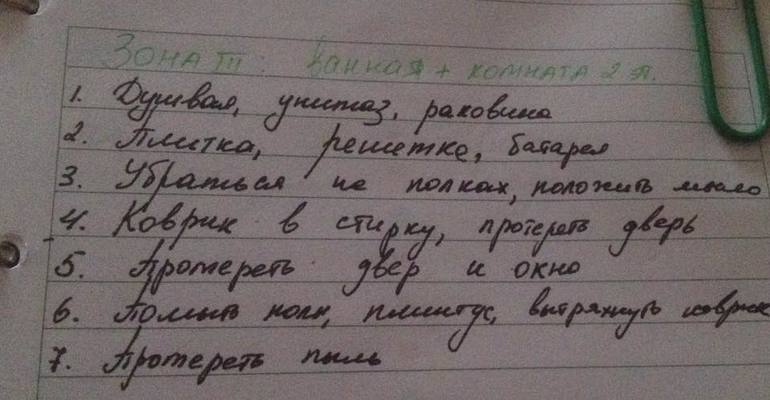 Зона III: Ванная + комната 2 эт.
1. Душевая, унитаз, раковина
2. Плитка, решетка, батарея
3. Убраться на полках, положить мыло
4. Коврик в стирку, протереть дверь
5. Протереть двер и окно
6. Помыть полы, плинтус, вытряхнуть коврик
7. Протереть пыль